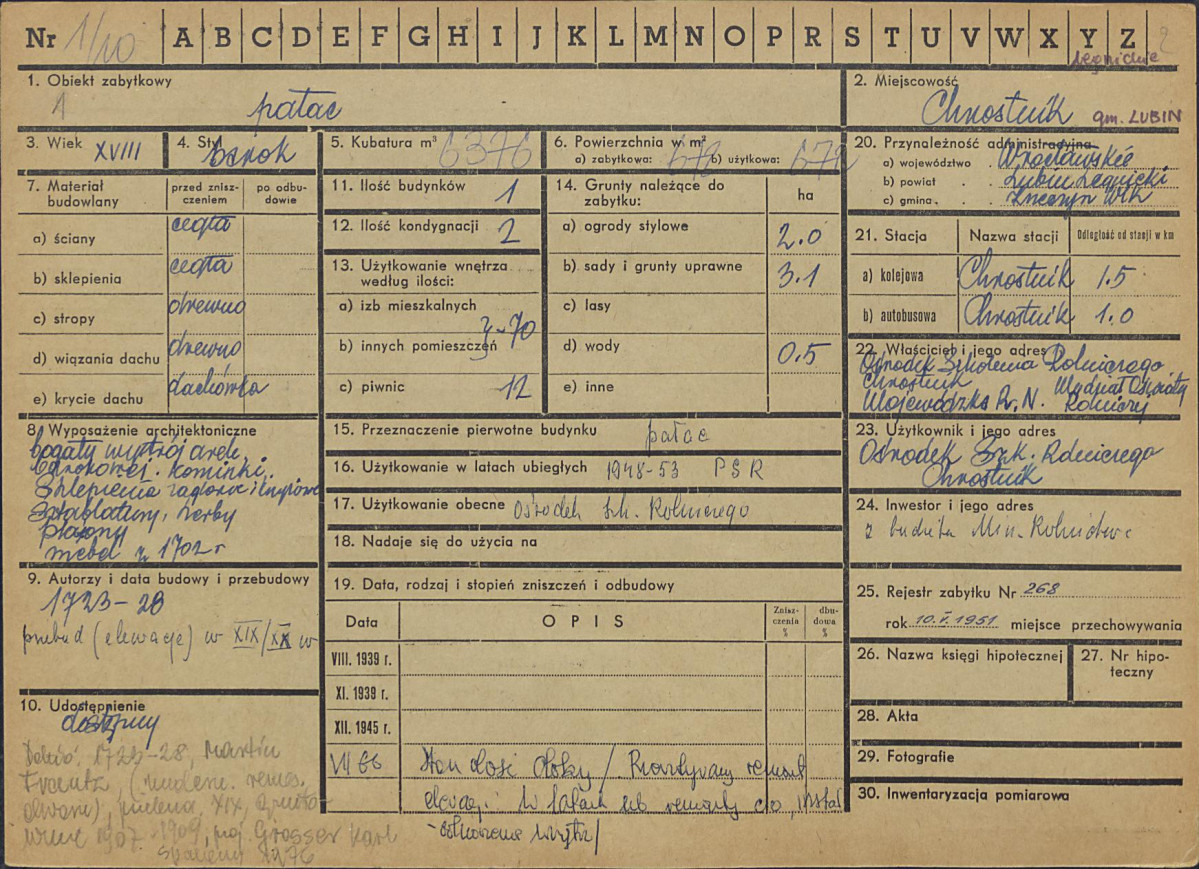 Nr 1/10 A B C D E F G H I J K L M N O P R S T U V W X Y Z 2
legnickie
1. Obiekt zabytkowy
A
pałac
2. Miejscowość
Chrostnik gm. LUBIN
3. Wiek XVIII
4. Styl barok
5. Kubatura m³ 6376
6. Powierzchnia w m²
a) zabytkowa: 678 b) użytkowa: 672
7. Materiał budowlany
przed zniszczeniem
po odbudowie
a) ściany cegła
b) sklepienia cegła
c) stropy drewno
d) wiązania dachu drewno
e) krycie dachu dachówka
8. Wyposażenie architektoniczne
bogaty wystrój arch.
barokowej. kominki.
Sklepienia żaglowe i
, herby
plafony
mebel z 1702 r
9. Autorzy i data budowy i przebudowy
1723-28
przebud (elewacje) w XIX/XX w
10. Udostępnienie
dostępny
1723-28, Martin
Frantz, (
XIX,
1907-1909, proj. Grosser Karl
spalony 1976
11. Ilość budynków 1
12. Ilość kondygnacji 2
13. Użytkowanie wnętrza
według ilości:
a) izb mieszkalnych
b) innych pomieszczeń 70
c) piwnic 12
14. Grunty należące do
zabytku:
ha
a) ogrody stylowe 2.0
b) sady i grunty uprawne 3.1
c) lasy
d) wody 0.5
e) inne
15. Przeznaczenie pierwotne budynku pałac
16. Użytkowanie w latach ubiegłych 1948-53 PGR
17. Użytkowanie obecne Ośrodek szk. Rolniczego
18. Nadaje się do użycia na
19. Data, rodzaj i stopień zniszczeń i odbudowy
Data
OPIS
Zniszczenia %
dbudowa %
VIII. 1939 r.
XI. 1939 r.
XII. 1945 r.
VII 66 Stan dość dobry / remont
elewacji. W latach ub remonty c.o, instal
- odnowienie wnętrz/
20. Przynależność administracyjna
a) województwo . Wrocławskie
b) powiat . . Lubin Legnicki
c) gmina. . .
21. Stacja
Nazwa stacji
Odległość od stacji w km
a) kolejowa Chrostnik 1.5
b) autobusowa Chrostnik 1.0
22. Właściciel i jego adres
Ośrodek Szkolenia Rolniczego
Chrostnik
Wojewódzka R. N. Wydział Oświaty
Rolniczej
23. Użytkownik i jego adres
Ośrodek Szk. Rolniczego
Chrostnik
24. Inwestor i jego adres
z budżetu Min. Rolnictwa
25. Rejestr zabytku Nr 268
rok 10.V.1951 miejsce przechowywania
26. Nazwa księgi hipotecznej
27. Nr hipoteczny
28. Akta
29. Fotografie
30. Inwentaryzacja pomiarowa